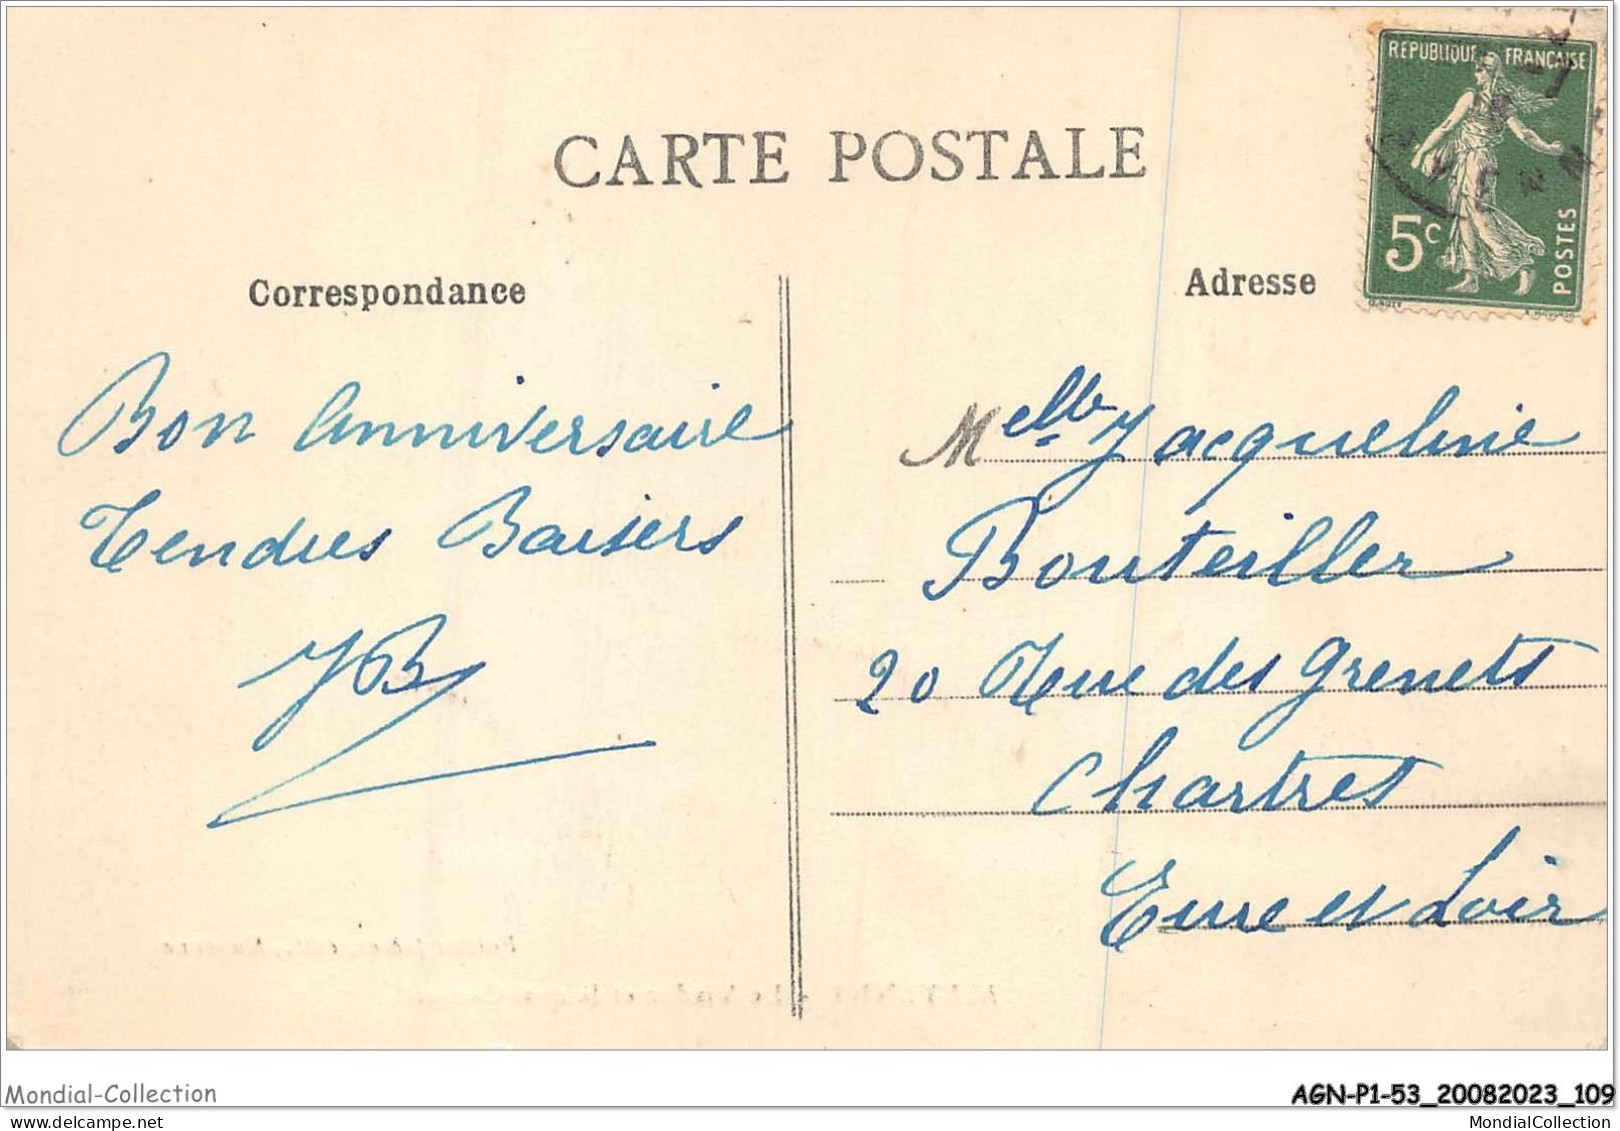 CARTE POSTALE
REPUBLIQUE FRANÇAISE
5c
POSTES
Correspondance
Adresse
Bon Anniversaire
Tendres Baisers
JB
Melle Jacqueline
Bouteiller
20 Rue des Grenets
Chartres
Eure et Loir
Mondial-Collection
AGN-P1-53_20082023_109
MondialCollection